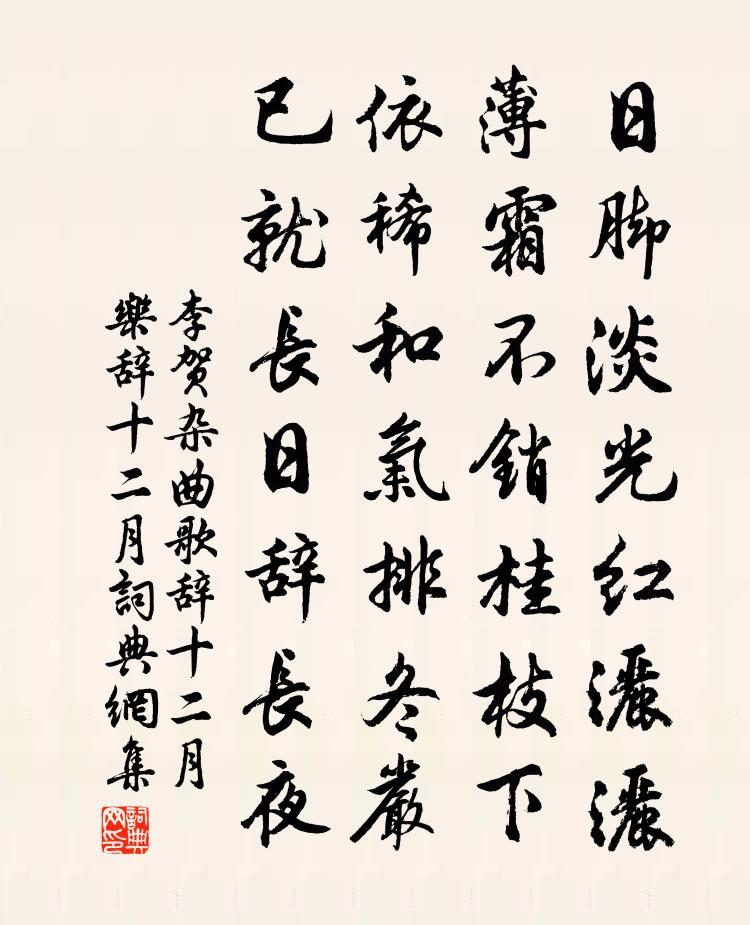 日脚淡光红灑灑
薄霜不銷桂枝下
依稀和氣排冬嚴
已就長日辞長夜
李贺杂曲歌辞十二月
樂辞十二月詞典網集
詞典网印